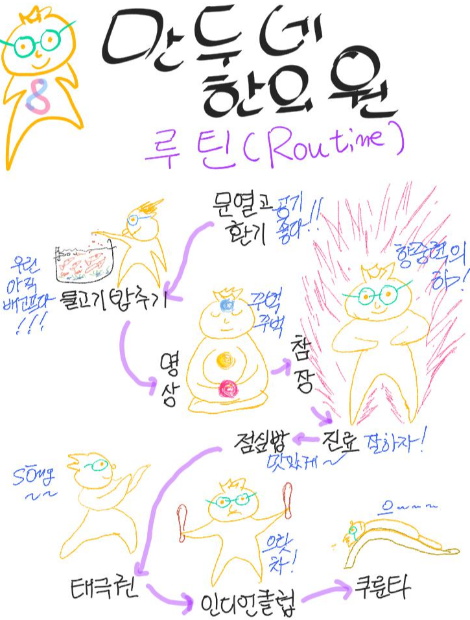 만두네
한의원
루틴(Routine)
8
문열고
환기
공기
좋아!!
우린
아직
배고프다
!!!
물고기밥주기
명
상
꾸벅
꾸벅
참
장
하!
진료
잘하자!
점심밥
맛있게~
Sōng
~~
태극권
으랏
차!
인디언클럽
으~~~
쿠룬타